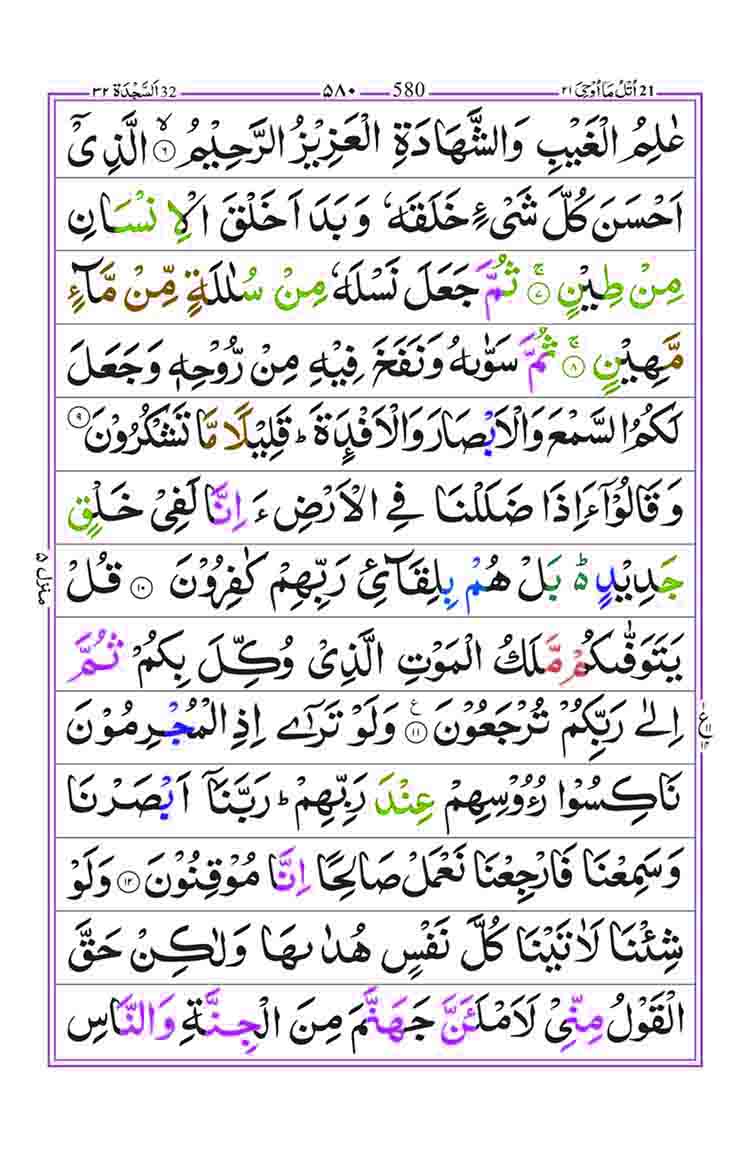 32 اَلسَّجْدَة ٣٢ ٥٨٠ 580 اُتْلُ مَآ اُوْحِیَ ٢١ 21
عٰلِمُ الْغَیْبِ وَالشَّهَادَةِ الْعَزِیْزُ الرَّحِیْمُ ۙ٦ الَّذِیْۤ
اَحْسَنَ كُلَّ شَیْءٍ خَلَقَهٗ وَ بَدَاَ خَلْقَ الْاِنْسَانِ
مِنْ طِیْنٍ ۚ٧ ثُمَّ جَعَلَ نَسْلَهٗ مِنْ سُلٰلَةٍ مِّنْ مَّآءٍ
مَّهِیْنٍ ۚ٨ ثُمَّ سَوّٰىهُ وَ نَفَخَ فِیْهِ مِنْ رُّوْحِهٖ وَ جَعَلَ
لَكُمُ السَّمْعَ وَ الْاَبْصَارَ وَ الْاَفْـِٕدَةَ ؕ قَلِیْلًا مَّا تَشْكُرُوْنَ ٩
وَ قَالُوْۤا ءَاِذَا ضَلَلْنَا فِی الْاَرْضِ ءَ اِنَّا لَفِیْ خَلْقٍ
جَدِیْدٍ ؕ۬ بَلْ هُمْ بِلِقَآئِ رَبِّهِمْ كٰفِرُوْنَ ١٠ قُلْ
یَتَوَفّٰىكُمْ مَّلَكُ الْمَوْتِ الَّذِیْ وُكِّلَ بِكُمْ ثُمَّ
اِلٰی رَبِّكُمْ تُرْجَعُوْنَ ١١ ع وَ لَوْ تَرٰۤی اِذِ الْمُجْرِمُوْنَ
نَاكِسُوْا رُءُوْسِهِمْ عِنْدَ رَبِّهِمْ ؕ رَبَّنَاۤ اَبْصَرْنَا
وَ سَمِعْنَا فَارْجِعْنَا نَعْمَلْ صَالِحًا اِنَّا مُوْقِنُوْنَ ١٢ وَ لَوْ
شِئْنَا لَاٰتَیْنَا كُلَّ نَفْسٍ هُدٰىهَا وَ لٰكِنْ حَقَّ
الْقَوْلُ مِنِّیْ لَاَمْلَـَٔنَّ جَهَنَّمَ مِنَ الْجِنَّةِ وَ النَّاسِ
منزل ٥